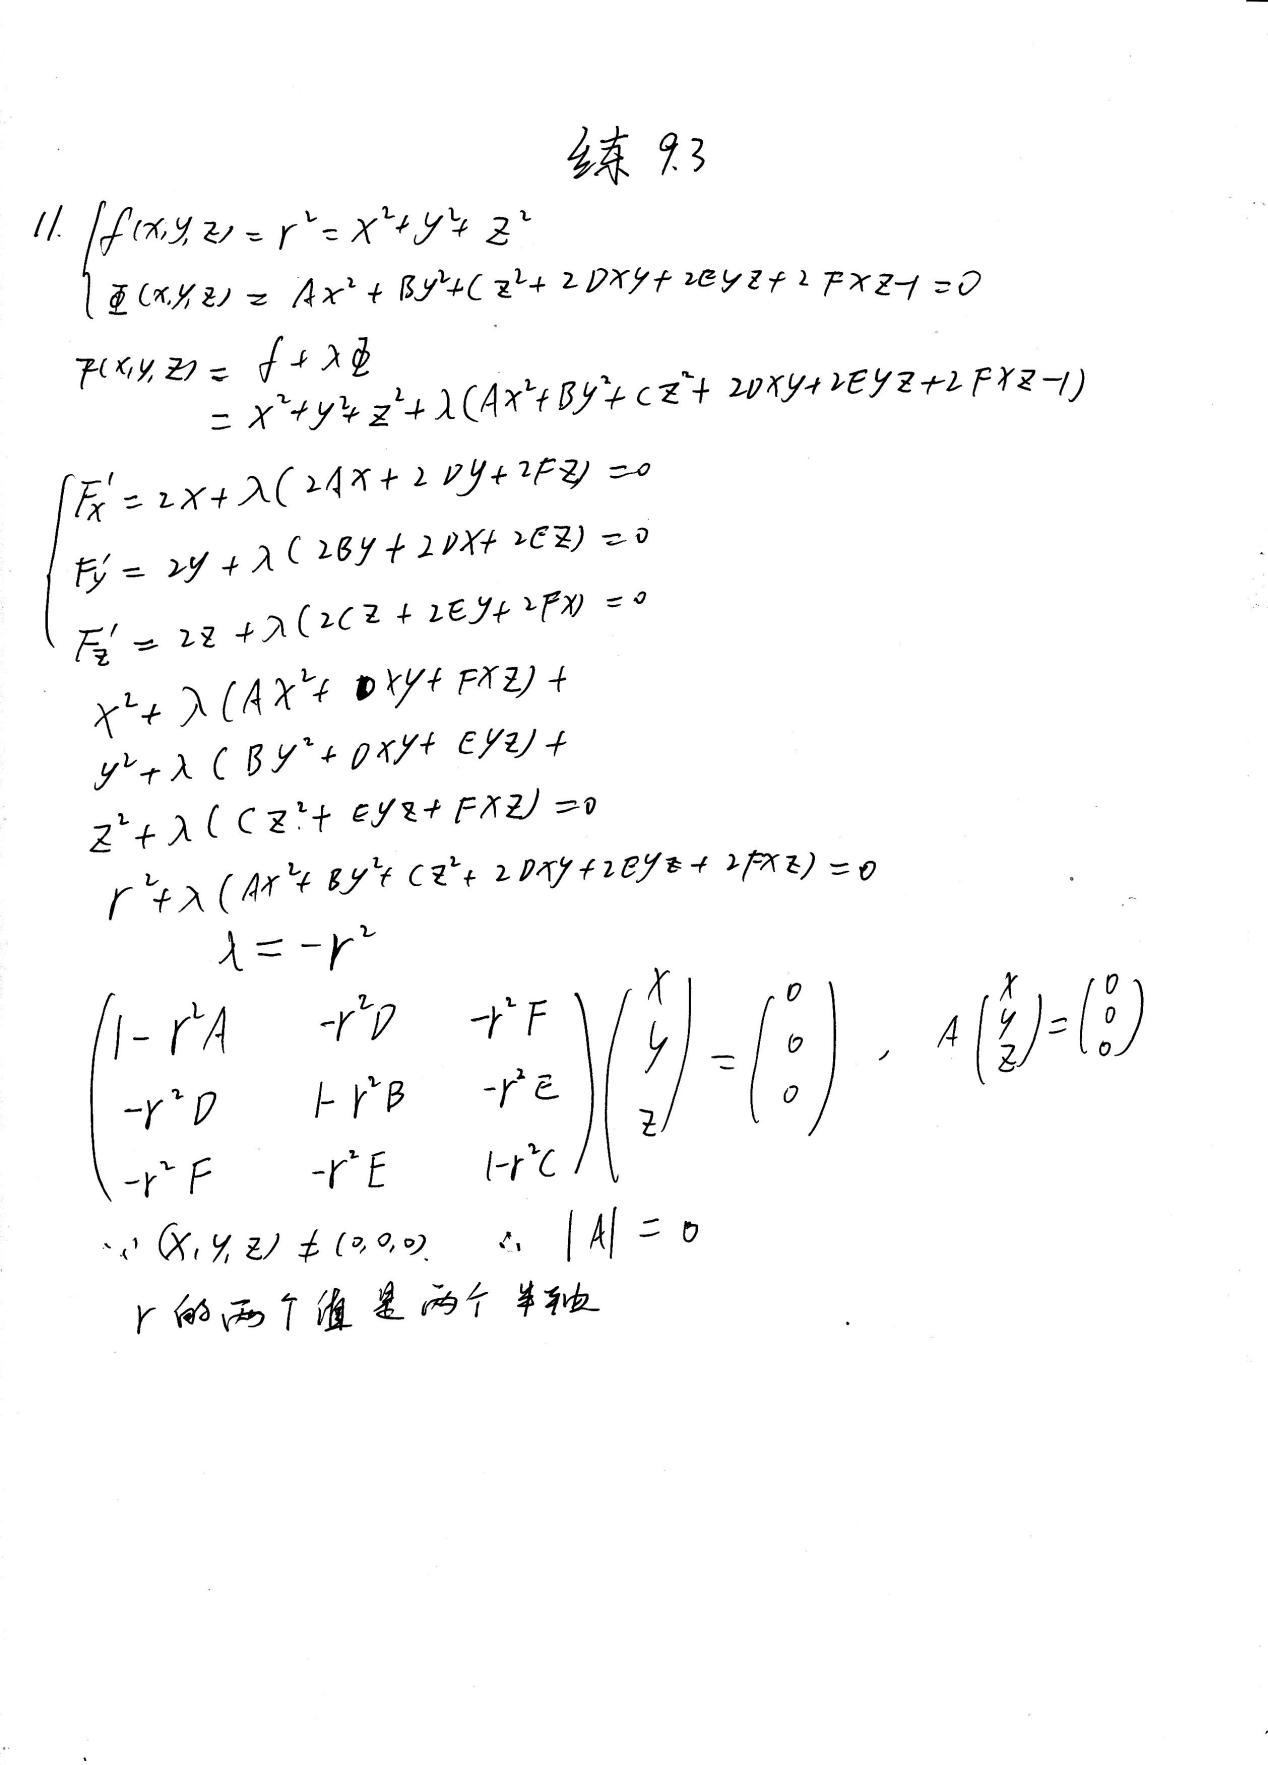 练 9.3
11. { f(x,y,z) = r² = x²+y²+z²
Φ(x,y,z) = Ax²+By²+Cz²+2Dxy+2Eyz+2Fxz-1=0
F(x,y,z) = f+λΦ
= x²+y²+z²+λ(Ax²+By²+Cz²+2Dxy+2Eyz+2Fxz-1)
{ Fx' = 2x+λ(2Ax+2Dy+2Fz)=0
Fy' = 2y+λ(2By+2Dx+2Ez)=0
Fz' = 2z+λ(2Cz+2Ey+2Fx)=0
x²+λ(Ax²+Dxy+Fxz)+
y²+λ(By²+Dxy+Eyz)+
z²+λ(Cz²+Eyz+Fxz)=0
r²+λ(Ax²+By²+Cz²+2Dxy+2Eyz+2Fxz)=0
λ=-r²
(1-r²A -r²D -r²F) (x) = (0) , A (x) = (0)
(-r²D 1-r²B -r²E) (y) (0) (y) (0)
(-r²F -r²E 1-r²C) (z) (0) (z) (0)
∵ (x,y,z) ≠ (0,0,0). ∴ |A|=0
r的两个值是两个半轴